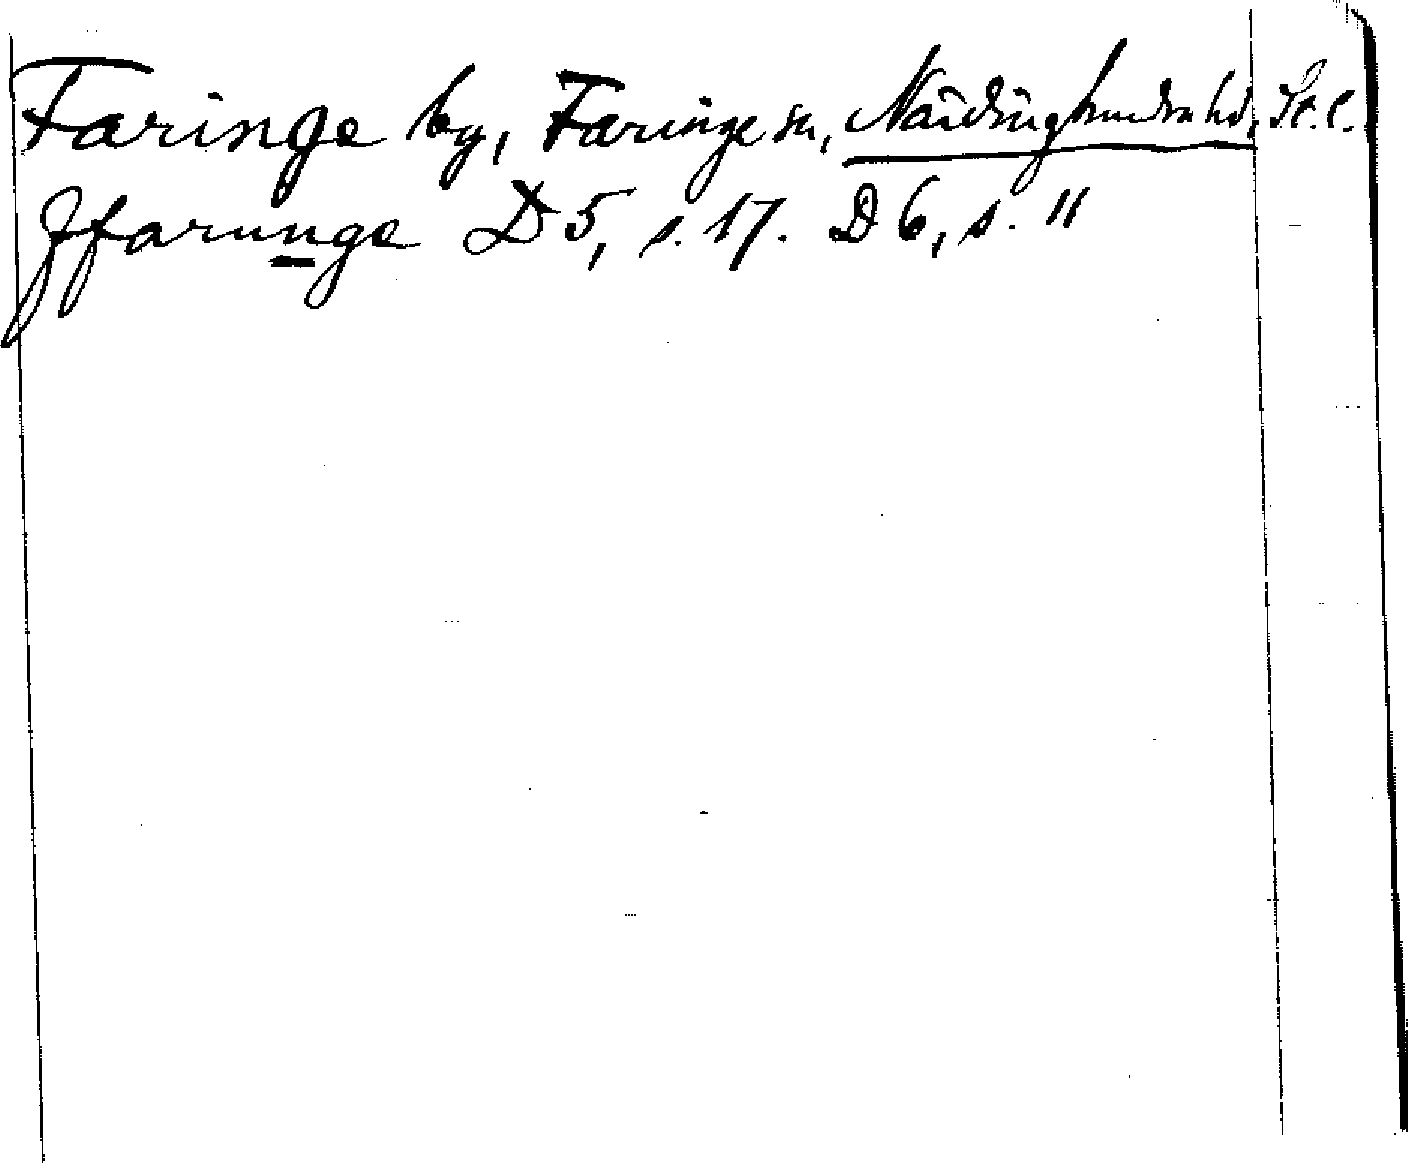 Faringe by, Faringe sn, Närdinghundra hd, St. l.
Ffarunge D 5, s. 17. D 6, s. 11